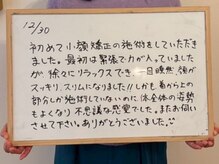 12/30
初めて小顔矯正の施術をしていただき
ました。最初は緊張で力が入っていました
が徐々にリラックスでき、一目瞭然、顔が
スッキリ、スリムになりました!!しかも首からとの
部分しか施術していないのに体全体の姿勢
もよくなり不思議な感覚でした。またお伺い
させて下さい。ありがとうございました。